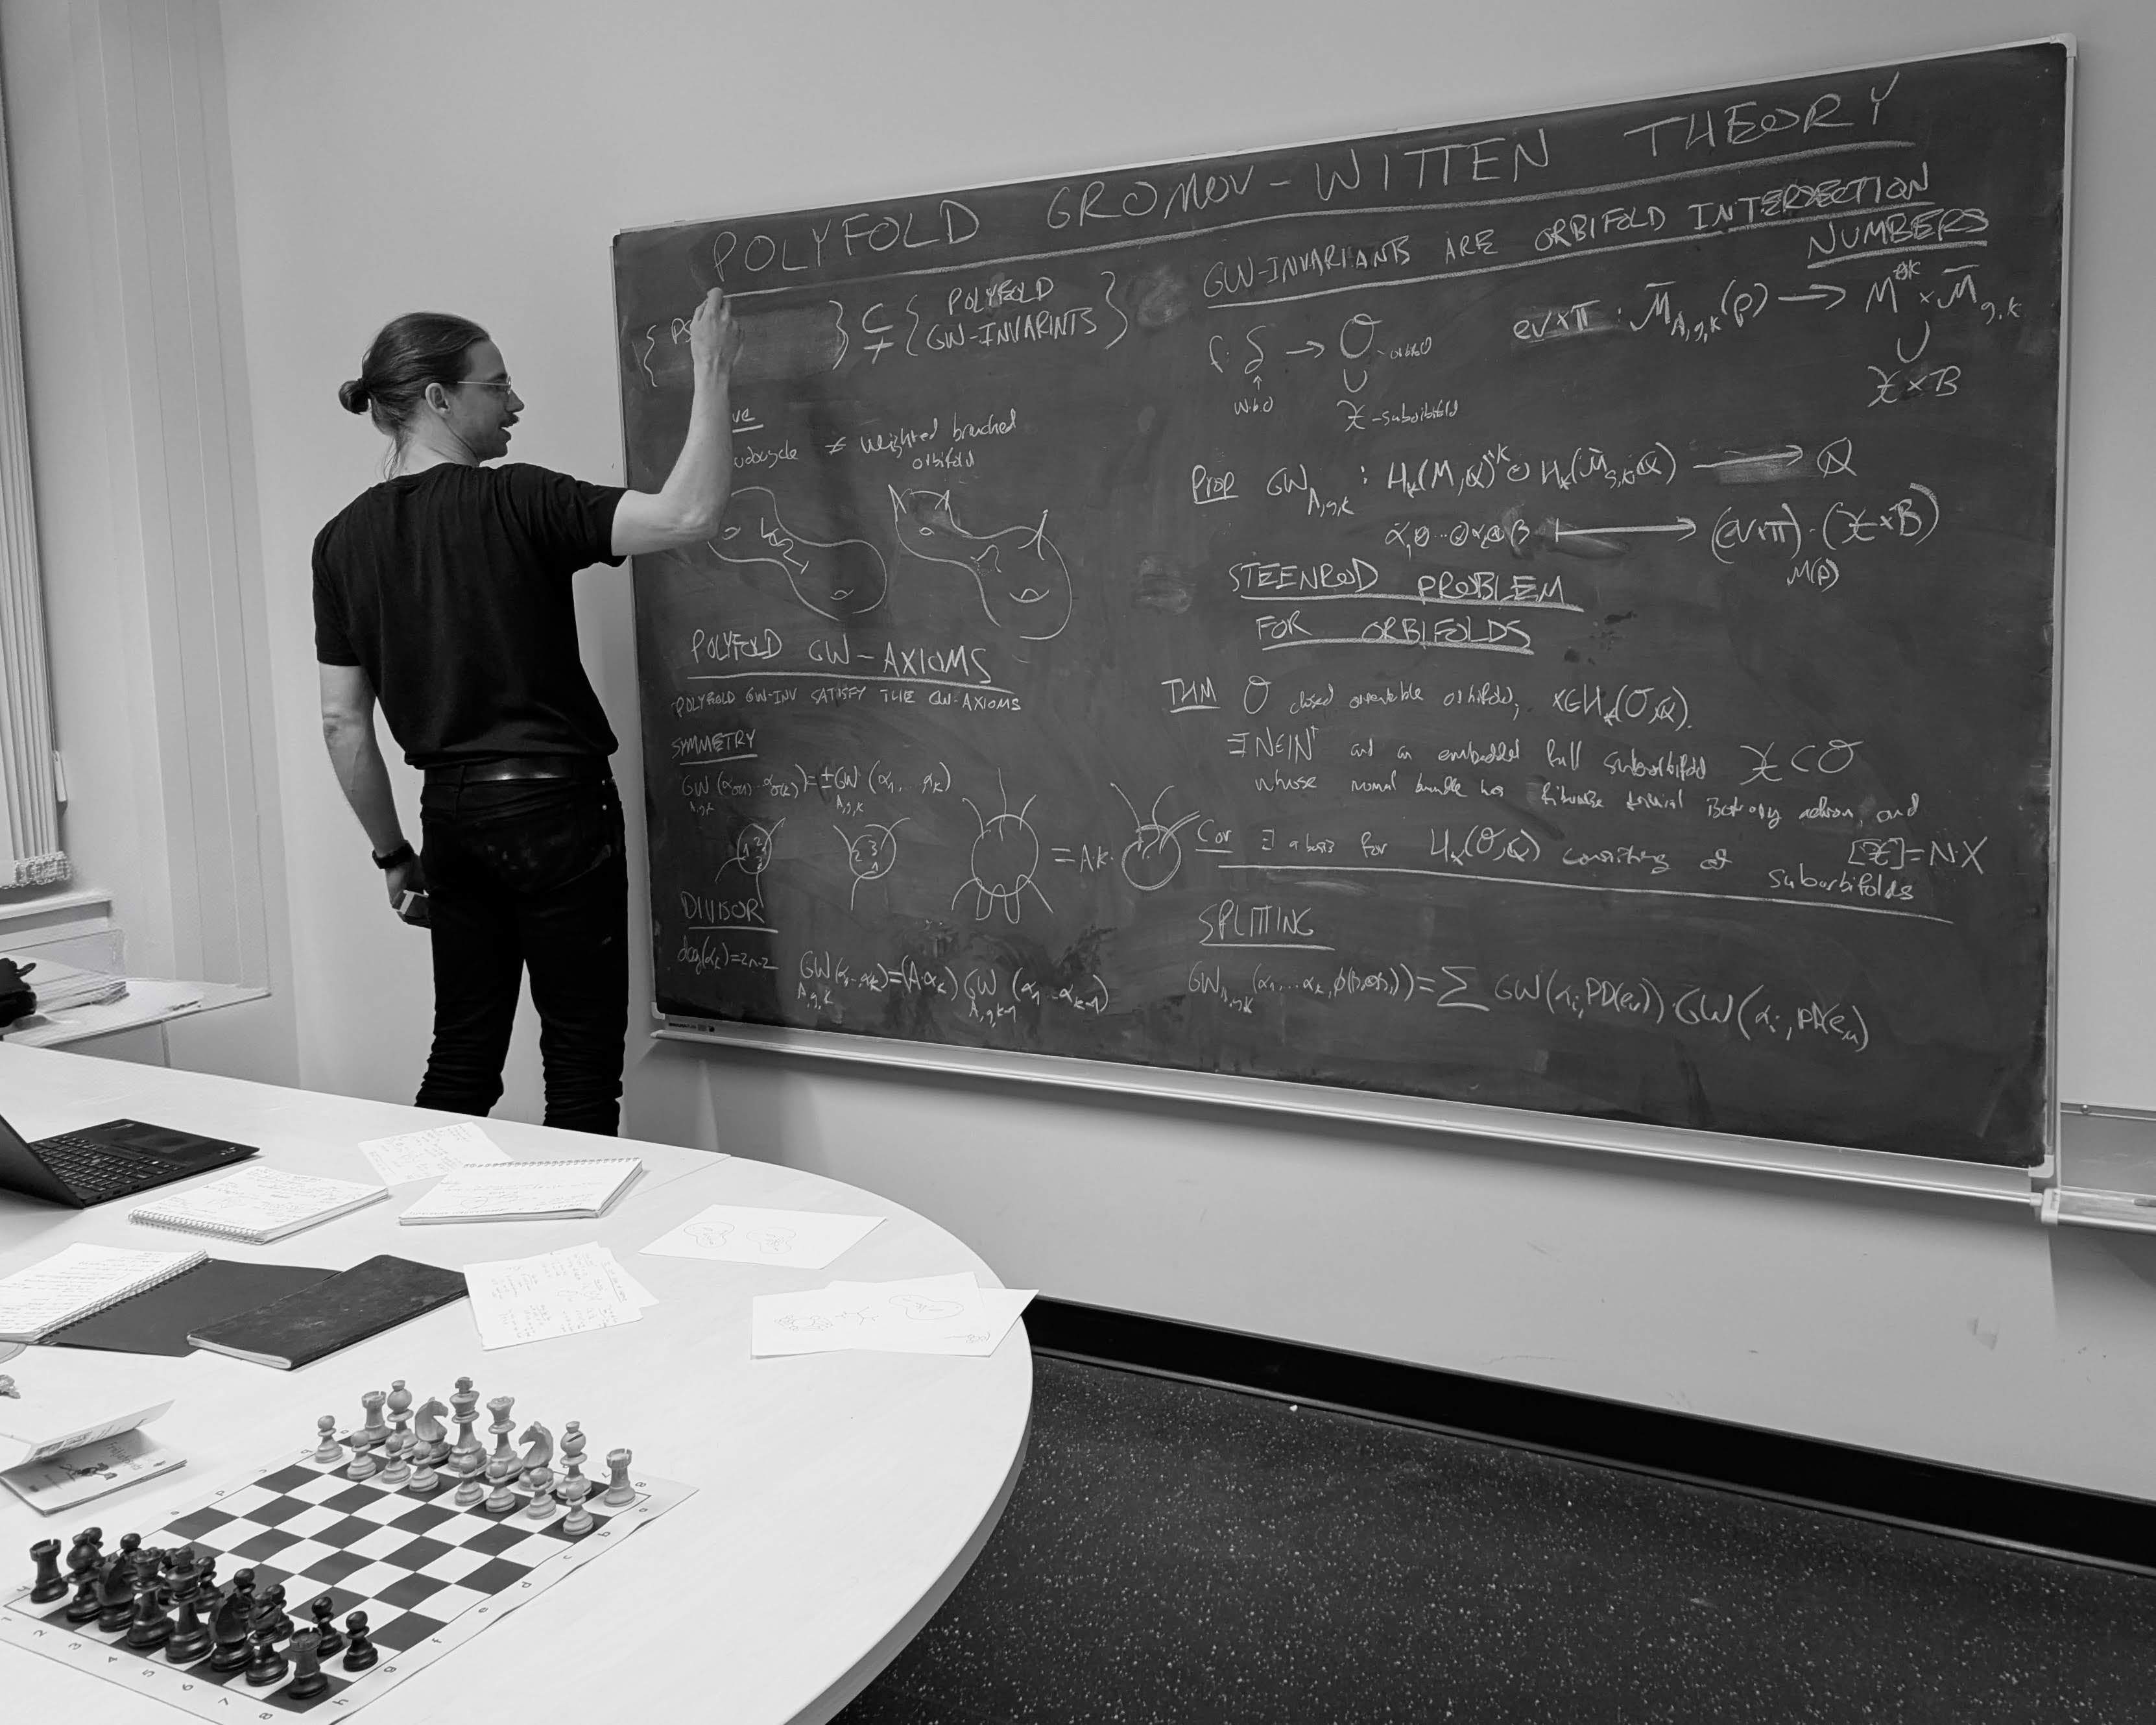 POLYFOLD GROMOV-WITTEN THEORY
{ PS } ⊊ { POLYFOLD
GW-INVARINTS }
ve
udocycle ≠ weighted branched
orbifold
POLYFOLD GW-AXIOMS
POLYFOLD GW-INV SATISFY THE GW-AXIOMS
SYMMETRY
GW_{A,g,k} (α_{σ(1)}...α_{σ(k)}) = ± GW_{A,g,k} (α_1,...,α_k)
1 2 3
2 3 1
= Ak·
DIVISOR
deg(α_k)=2n-2
GW_{A,g,k} (α_1...α_k) = (A·α_k) GW_{A,g,k-1} (α_1...α_{k-1})
GW-INVARIANTS ARE ORBIFOLD INTERSECTION
NUMBERS
f: S → O - orbifold
wbo
∪
X - suborbifold
ev×π : M̄_{A,g,k}(p) → M^k × M̄_{g,k}
∪
X × B
Prop GW_{A,g,k} : H_*(M,Q)^{⊗k} ⊗ H_*(M̄_{g,k},Q) → Q
α_1⊗...⊗α_k⊗β ⟼ (ev×π)·(X×B)
M(p)
STEENROD PROBLEM
FOR ORBIFOLDS
THM O closed orientable orbifold, x∈H_*(O,Q).
∃ N∈ℕ⁺ and an embedded full suborbifold X ⊂ O
whose normal bundle has fibrewise trivial isotropy action, and
[X]=N·X
Cor ∃ a basis for H_*(O,Q) consisting of suborbifolds
SPLITTING
GW_{A,g,k} (α_1,...α_k, )) = Σ GW(α_i; PD(e_ν))·GW(α_i; PD(e_μ))